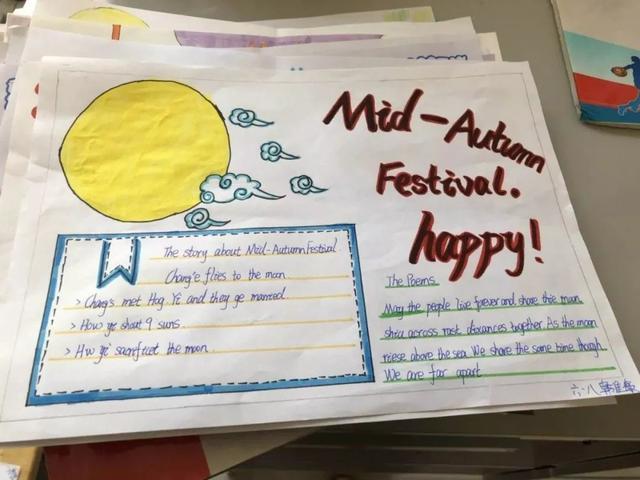 Mid-Autumn
Festival.
happy!
The story about Mid-Autumn Festival
Chang'e flies to the moon
> Chang's met Hog Yi and they ge married
> How ye shout 9 suns.
> Hw yi' sacrfucet the moon.
The Poems
May the people live forever and share this moon
shiu across rost distances together. As the moon
riese above the sea. We share the same time though
We are far apart
六·八